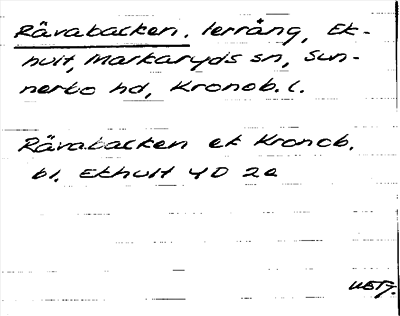 Rävabacken, terräng, Ek-
hult, Markaryds sn, Sun-
nerbo hd, Kronob. l.
Rävabacken ek Kronob.
bl. Ekhult 4D 2a